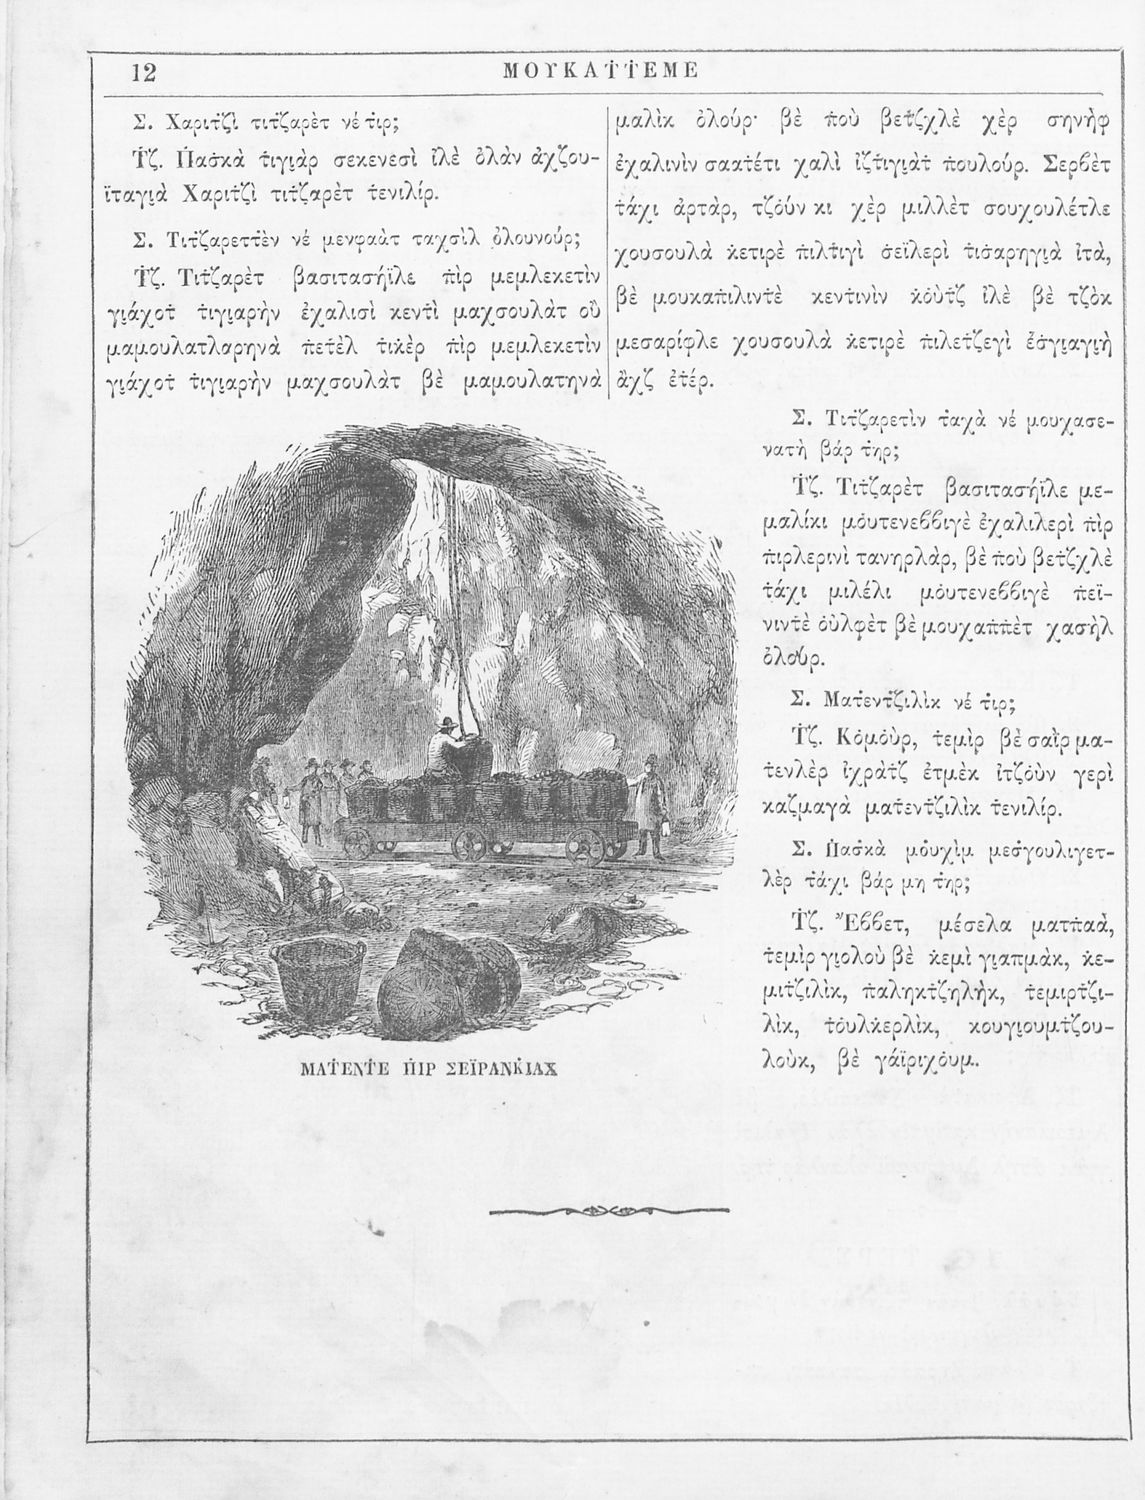 12
ΜΟΥΚΑΤ̇Τ̇ΕΜΕ
Σ. Χαριτ̇ζὶ τιτ̇ζαρὲτ νέ τ̇ιρ;
Τ̇ζ. Π̇ασ̇κὰ τ̇ιγιὰρ σεκενεσὶ ἰλὲ ὀλὰν ἀχζου-
ϊταγιὰ Χαριτ̇ζὶ τιτ̇ζαρὲτ τ̇ενιλίρ.
Σ. Τιτ̇ζαρεττ̇ὲν νέ μενφαὰτ ταχσὶλ ὀλουνούρ;
Τ̇ζ. Τιτ̇ζαρὲτ βασιτασήϊλε π̇ὶρ μεμλεκετὶν
γιάχοτ̇ τ̇ιγιαρὴν ἐχαλισὶ κεντ̇ὶ μαχσουλὰτ οὒ
μαμουλατλαρηνὰ π̇ετ̇ὲλ τ̇ικ̇ὲρ π̇ὶρ μεμλεκετὶν
γιάχοτ̇ τ̇ιγιαρὴν μαχσουλὰτ βὲ μαμουλατηνὰ
μαλὶκ ὀλούρ· βὲ π̇οὺ βετ̇ζχλὲ χὲρ σηνὴφ
ἐχαλινὶν σαατ̇έτι χαλὶ ἰζτ̇ιγιὰτ̇ π̇ουλούρ. Σερβὲτ
τ̇άχι ἀρτὰρ, τζο̇ύν κι χὲρ μιλλὲτ σουχουλέτλε
χουσουλὰ κ̇ετιρὲ π̇ιλτ̇ιγὶ σ̇εϊλερὶ τ̇ισ̇αρηγιὰ ἰτὰ,
βὲ μουκαπ̇ιλιντ̇ὲ κεντινὶν κ̇ο̇ὺτ̇ζ ἰλὲ βὲ τζ̇ὸκ
μεσαρίφλε χουσουλὰ κ̇ετιρὲ π̇ιλετ̇ζεγὶ ἐσ̇γιαγιὴ
ἂχζ ἐτ̇έρ.
Σ. Τιτ̇ζαρετὶν τ̇αχὰ νέ μουχασε-
νατὴ βάρ τ̇ηρ;
Τ̇ζ. Τιτ̇ζαρὲτ βασιτασήϊλε με-
μαλίκι μο̇υτενεββιγὲ ἐχαλιλερὶ π̇ὶρ
π̇ιρλερινὶ τανηρλὰρ, βὲ π̇οὺ βετ̇ζχλὲ
τ̇άχι μιλέλι μο̇υτενεββιγὲ π̇εϊ-
νιντ̇ὲ ο̇ὐλφὲτ βὲ μουχαπ̇π̇ὲτ χασὴλ
ὀλούρ.
Σ. Ματ̇εντ̇ζιλὶκ νέ τ̇ιρ;
Τ̇ζ. Κο̇μο̇ὺρ, τ̇εμὶρ βὲ σαῒρ μα-
τ̇ενλὲρ ἰχρὰτ̇ζ ἐτμὲκ ἰτζο̇ὺν γερὶ
καζμαγὰ ματ̇εντ̇ζιλὶκ τ̇ενιλίρ.
Σ. Π̇ασ̇κὰ μο̇υχὶμ μεσ̇γουλιγετ-
λὲρ τ̇άχι βάρ μη τ̇ηρ;
Τ̇ζ. Ἔββετ, μέσελα ματπ̇αὰ,
τ̇εμὶρ γιολοὺ βὲ κ̇εμὶ γιαπμὰκ, κ̇ε-
μιτ̇ζιλὶκ, π̇αληκτ̇ζηλὴκ, τ̇εμιρτ̇ζι-
λὶκ, τ̇ο̇υλκ̇ερλὶκ, κουγιουμτ̇ζου-
λοὺκ, βὲ γάϊριχο̇υμ.
ΜΑΤ̇ΕΝΤ̇Ε Π̇ΙΡ ΣΕΪΡΑΝΚ̇ΙΑΧ